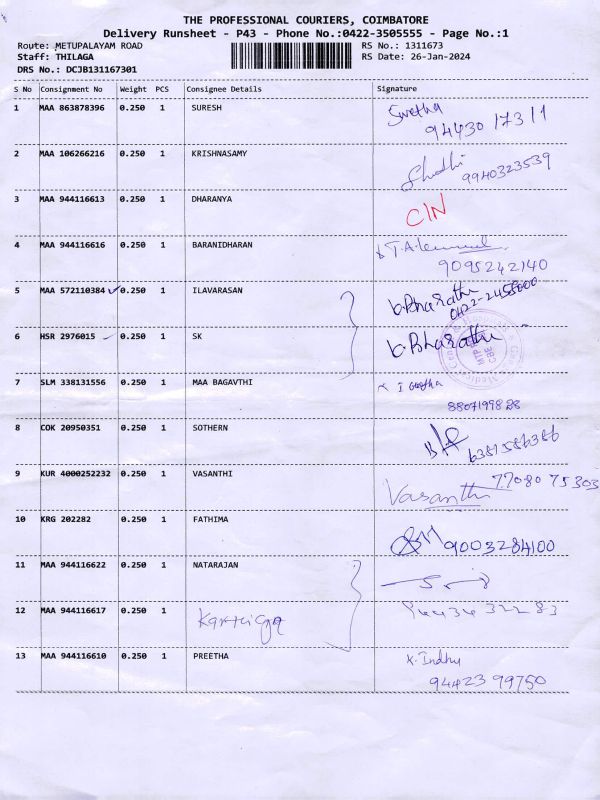 THE PROFESSIONAL COURIERS, COIMBATORE
Delivery Runsheet - P43 - Phone No.:0422-3505555 - Page No.:1
Route: METUPALAYAM ROAD RS No.: 1311673
Staff: THILAGA RS Date: 26-Jan-2024
DRS No.: DCJB131167301
S No Consignment No Weight PCS Consignee Details Signature
1 MAA 863878396 0.250 1 SURESH Swetha
94430 17311
2 MAA 106266216 0.250 1 KRISHNASAMY
9940323539
3 MAA 944116613 0.250 1 DHARANYA C/N
4 MAA 944116616 0.250 1 BARANIDHARAN
9095242140
5 MAA 572110384 0.250 1 ILAVARASAN b.Bharathi
0422-2455000
6 HSR 2976015 0.250 1 SK b.Bharathi
7 SLM 338131556 0.250 1 MAA BAGAVTHI
8807199828
8 COK 20950351 0.250 1 SOTHERN
6381586386
9 KUR 4000252232 0.250 1 VASANTHI 77080 75303
Vasanthi
10 KRG 202282 0.250 1 FATHIMA
9003284100
11 MAA 944116622 0.250 1 NATARAJAN
12 MAA 944116617 0.250 1 Karthiga 94434 32283
13 MAA 944116610 0.250 1 PREETHA K. Indhu
94423 99750